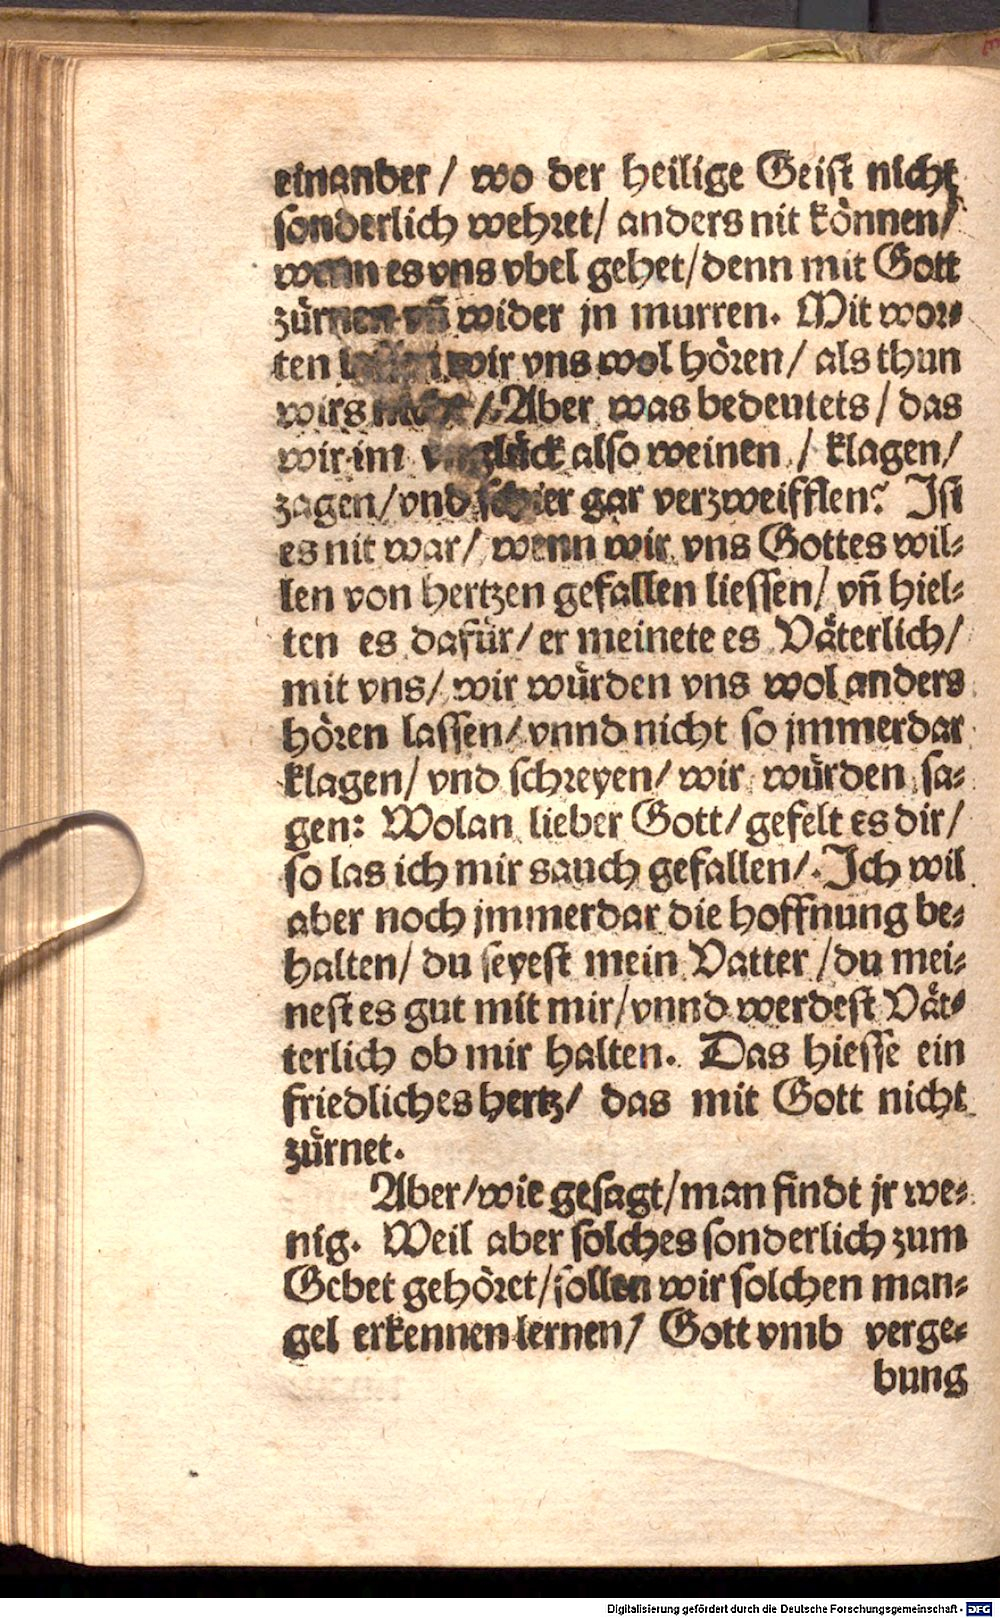 einander / wo der heilige Geist nicht
sonderlich wehret / anders nit können /
wenn es vns vbel gehet / denn mit Gott
zürnen vñ wider jn murren. Mit wor=
ten wir vns wol hören / als thun
wirs nicht / Aber was bedeutets / das
wir im vnglück also weinen / klagen /
zagen / vnd schier gar verzweifflen? Ist
es nit war / wenn wir vns Gottes wil=
len von hertzen gefallen liessen / vñ hiel=
ten es dafür / er meinete es Väterlich /
mit vns / wir würden vns wol anders
hören lassen / vnnd nicht so jmmerdar
klagen / vnd schreyen / wir würden sa=
gen: Wolan lieber Gott / gefelt es dir /
so las ich mir sauch gefallen / Ich wil
aber noch jmmerdar die hoffnung be=
halten / du seyest mein Vatter / du mei=
nest es gut mit mir / vnnd werdest Vät=
terlich ob mir halten. Das hiesse ein
friedliches hertz / das mit Gott nicht
zürnet.
Aber / wie gesagt / man findt jr we=
nig. Weil aber solches sonderlich zum
Gebet gehöret / sollen wir solchen man=
gel erkennen lernen / Gott vmb verge=
bung
Digitalisierung gefördert durch die Deutsche Forschungsgemeinschaft - DFG